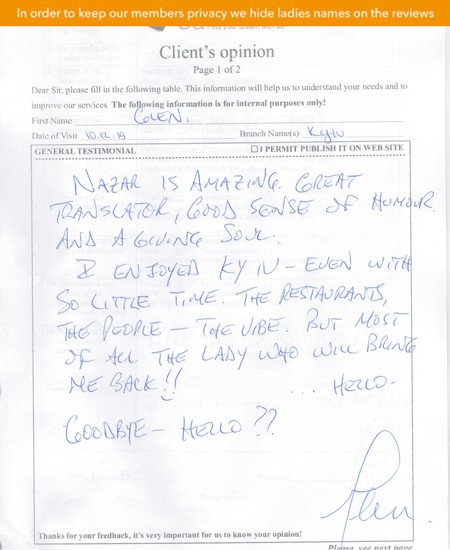 In order to keep our members privacy we hide ladies names on the reviews
Client's opinion
Page 1 of 2
Dear Sir, please fill in the following table. This information will help us to understand your needs and to
improve our services. The following information is for internal purposes only!
First Name GLEN.
Date of Visit 10.12.19 Branch Name(s) Kyiv
GENERAL TESTIMONIAL ☐ I PERMIT PUBLISH IT ON WEB SITE
NAZAR IS AMAZING. GREAT
TRANSLATOR, GOOD SENSE OF HUMOUR
AND A GIVING SOUL.
I ENJOYED KYIV - EVEN WITH
SO LITTLE TIME. THE RESTAURANTS,
THE PEOPLE - THE VIBE. BUT MOST
OF ALL THE LADY WHO WILL BRING
ME BACK!! ... HELLO -
GOODBYE - HELLO ??
Glen
Thanks for your feedback, it's very important for us to know your opinion!
Please see next page